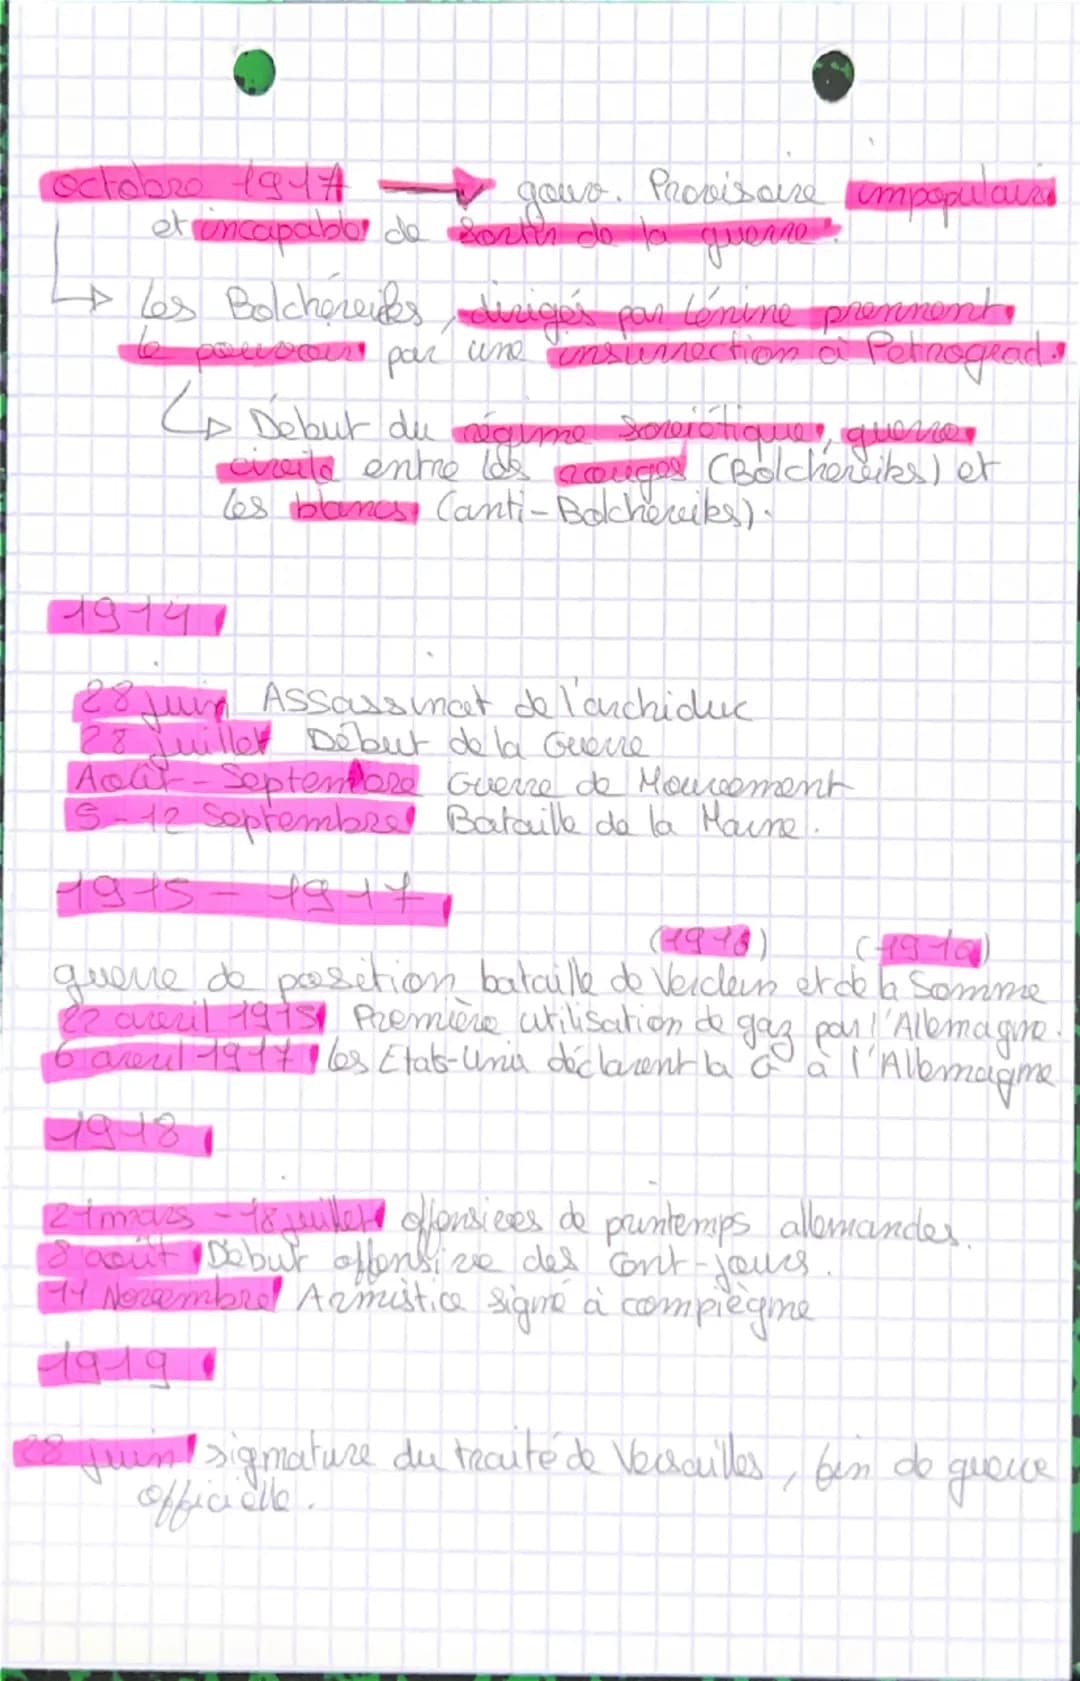 octobre 1917 → gouv. Provisoire impopulaire
et incapable de sortir de la guerre.
↳ Les Bolchéviks, dirigés par Lénine prennent
le pouvoir par une insurrection à Petrograd.
↳ Début du régime soviétique, guerre
civile entre les rouges (Bolchéviks) et
les blancs (anti-Bolcheviks).
1914
28 juin Assassinat de l'archiduc
28 juillet Début de la Guerre
Août - Septembre Guerre de Mouvement
5-12 Septembre Bataille de la Marne.
1915 - 1917
(1916) (1916)
guerre de position bataille de Verdun et de la Somme
22 avril 1915 Première utilisation de gaz par l'Allemagne.
6 avril 1917 les Etats-Unis déclarent la G à l'Allemagne
1918
21 mars - 18 juillet offensives de printemps allemandes.
8 août Début offensive des Cent-jours.
11 Novembre Armistice signé à compiègne
1919
28 juin signature du traité de Versailles, fin de guerre
officielle.